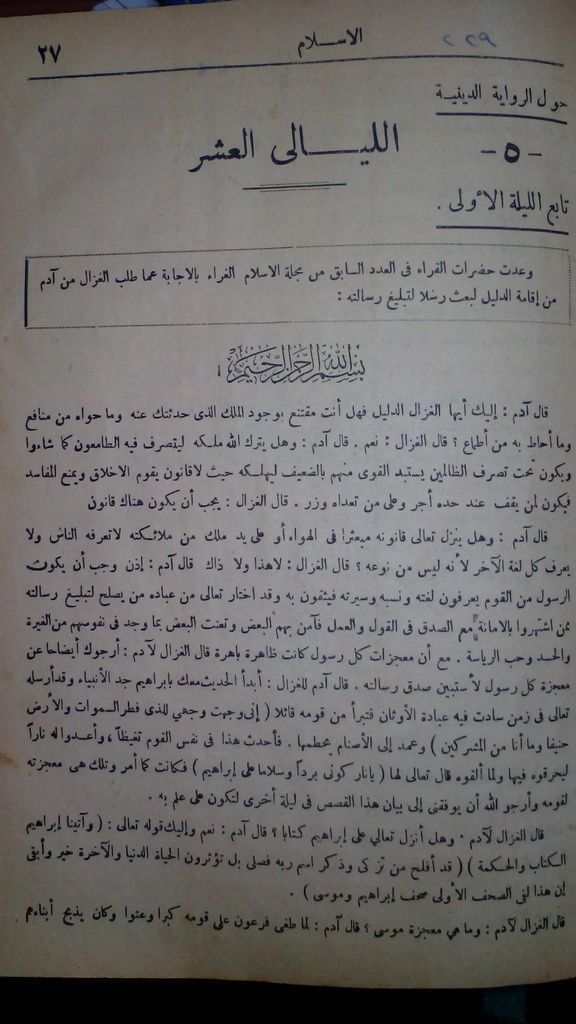 ٢٧ الاسلام ٢٢٩
حول الرواية الدينية
- ٥ - الليالى العشر
تابع الليلة الأولى .
وعدت حضرات القراء فى العدد السابق من مجلة الاسلام الغراء بالاجابة عما طلب الغزال من آدم
من إقامة الدليل لبعث رسلا لتبليغ رسالته :
بسم الله الرحمن الرحيم
قال آدم : إليك أيها الغزال الدليل فهل أنت مقتنع بوجود الملك الذى حدثتك عنه وما حواه من منافع
وما أحاط به من أطماع ؟ قال الغزال : نعم . قال آدم : وهل يترك الله ملكه ليتصرف فيه الطامعون كما شاءوا
ويكون تحت تصرف الظالمين يستبد القوى منهم بالضعيف ليهلكه حيث لا قانون يقوم الاخلاق ويمنع المفاسد
فيكون لمن يقف عند حده أجر وعلى من تعداه وزر . قال الغزال : يجب أن يكون هناك قانون
قال آدم : وهل ينزل تعالى قانونه مبعثرا فى الهواء أو على يد ملك من ملائكته لا تعرفه الناس ولا
يعرف كل لغة الآخر لأنه ليس من نوعه ؟ قال الغزال : لا هذا ولا ذاك قال آدم : إذن وجب أن يكون
الرسول من القوم يعرفون لغته ونسبه وسيرته فيثقون به وقد اختار تعالى من عباده من يصلح لتبليغ رسالته
ممن اشتهروا بالامانة مع الصدق فى القول والعمل فآمن بهم البعض وتعنت البعض بما وجد فى نفوسهم من الغيرة
والحسد وحب الرياسة . مع أن معجزات كل رسول كانت ظاهرة باهرة قال الغزال لآدم : أرجوك أيضاحا عن
معجزة كل رسول لأستبين صدق رسالته . قال آدم للغزال : أبدأ الحديث معك بابراهيم جد الأنبياء وقد أرسله
تعالى فى زمن سادت فيه عبادة الأوثان فتبرأ من قومه قائلا ( إنى وجهت وجهي للذى فطر السموات والأرض
حنيفا وما أنا من المشركين ) وعمد إلى الأصنام يحطمها . فأحدث هذا فى نفس القوم تغيظاً ، وأعدوا له ناراً
ليحرقوه فيها ولما ألقوه قال تعالى لها ( يانار كونى برداً وسلاما على إبراهيم ) فكانت كما أمر وتلك هى معجزته
لقومه وأرجو الله أن يوفقنى إلى بيان هذا القصص فى ليلة أخرى لتكون على علم به .
قال الغزال لآدم . وهل أنزل تعالي على إبراهيم كتابا ؟ قال آدم : نعم وإليك قوله تعالى : ( وآتينا إبراهيم
الكتاب والحكمة ) ( قد أفلح من تزكى وذكر اسم ربه فصلى بل تؤثرون الحياة الدنيا والآخرة خير وأبقى
إن هذا لفى الصحف الأولى صحف إبراهيم وموسى ) .
قال الغزال لآدم : وما هي معجزة موسى ؟ قال آدم : لما طغى فرعون على قومه كبرا وعتوا وكان يذبح أبناءهم